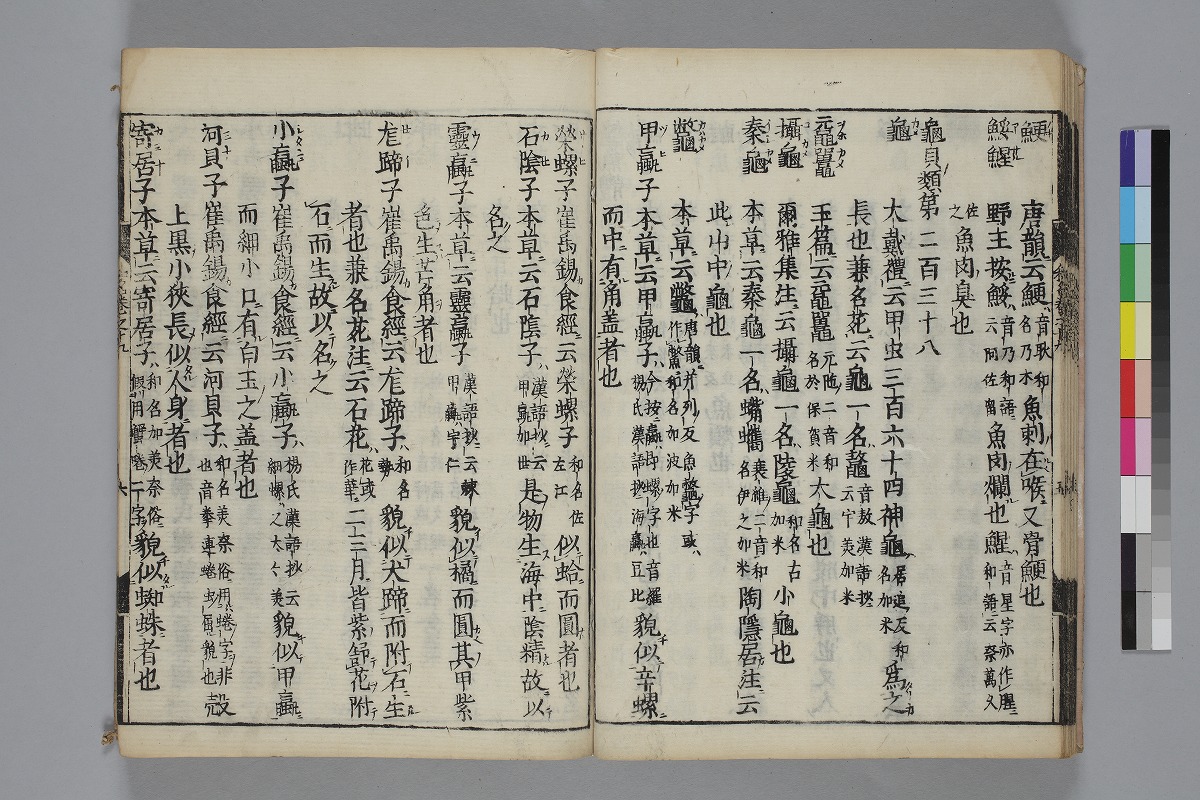 鯁 唐韻云鯁音耿和名乃木魚刺在喉又骨鯁也
鮾鯹 野王按鮾音乃和語云阿佐留魚肉爛也鯹音星字亦作腥和語云奈萬久佐之魚肉臭也
龜貝類第二百三十八
龜 大戴禮云甲虫三百六十四神龜居追反和名加米為之
長也兼名苑云龜一名鼇音敖漢語抄云宇美加米
黿鼉 玉篇云黿鼉元陁二音和名於保賀米大龜也
攝龜 爾雅集注云攝龜一名陵龜和名古加米小龜也
秦龜 本草云秦龜一名蟕蠵和名伊之加米陶隱居注云
此山中龜也
鼈 本草云鼈唐韻并列反魚鼈字或作鱉和名加波加米
甲蠃子 本草云甲蠃子今按蠃即螺字也音羅楊氏漢語抄海蠃豆比貌似辛螺
而中有角蓋者也
榮螺子 崔禹錫食經云榮螺子和名佐左江似蛤而圓者也
石陰子 本草云石陰子漢語抄云甲蠃加世是物生海中陰精故以
名之
靈蠃子 本草云靈蠃子漢語抄云棘甲蠃宇仁貌似橘而圓其甲紫
色生芒角者也
尨蹄子 崔禹錫食經云尨蹄子和名勢貌似犬蹄而附石生
者也兼名苑注云石花花或作華二三月皆紫舒花附
石而生故以名之
小蠃子 崔禹錫食經云小蠃子楊氏漢語抄云細螺之太々美貌似甲蠃
而細小口有白玉之蓋者也
河貝子 崔禹錫食經云河貝子和名美奈俗用蜷字非也音拳連蜷虫屈貌也殼
上黑小狹長似人身者也
寄居子 本草云寄居子和名加美奈俗假用蟹蜷二字貌似蜘蛛者也
六